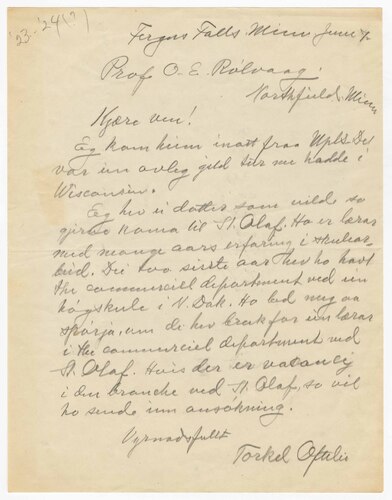 '23-'24(?)
Fergus Falls, Minn June 7.
Prof O. E. Rolvaag.
Northfield, Minn
Kjære ven!
Eg kom heim inatt fraa Mpls. Det
var ein ovleg gild tur me hadde i
Wisconsin.
Eg hev ei dotter som vilde so
gjerne koma til St. Olaf. Ho er lærar
med mange aars erfaring i skulear-
beid. Dei two siste aar hev ho havt
the commerciel department ved ein
högskule i N. Dak. Ho bed meg aa
spörja, um de hev bruk for ein lærar
i the commerciel department ved
St. Olaf. Hvis der er vatancy
i den branche ved St. Olaf, so vil
ho sende inn ansökning.
Vyrnadsfullt
Torkel Oftelie